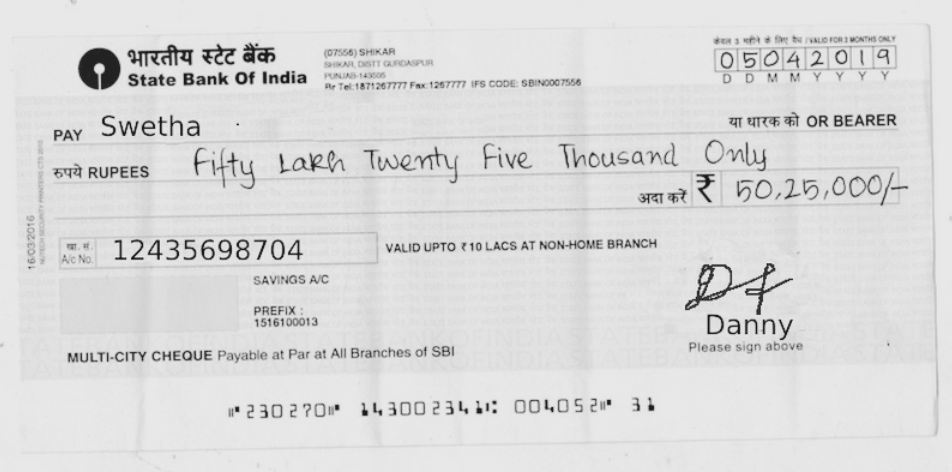 भारतीय स्टेट बैंक
State Bank Of India
(07556) SHIKAR
SHIKAR, DISTT GURDASPUR
PUNJAB-143505
Br Tel:1871267777 Fax:1267777 IFS CODE: SBIN0007556
केवल 3 महीने के लिए वैध / VALID FOR 3 MONTHS ONLY
05042019
D D M M Y Y Y Y
PAY Swetha
या धारक को OR BEARER
रुपये RUPEES Fifty Lakh Twenty Five Thousand Only
अदा करें ₹ 50,25,000/-
16/03/2016
खा. सं.
A/c No. 12435698704
VALID UPTO ₹ 10 LACS AT NON-HOME BRANCH
SAVINGS A/C
PREFIX :
1516100013
Danny
Please sign above
MULTI-CITY CHEQUE Payable at Par at All Branches of SBI
⑈230270⑈ 143002341⑆ 004052⑈ 31